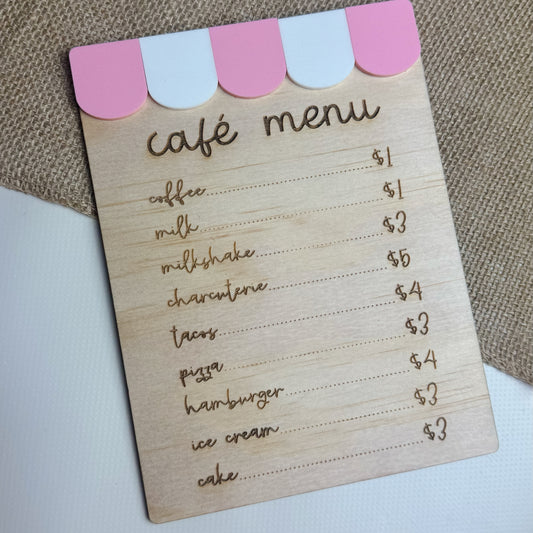 café menu
coffee....................$1
milk....................$1
milkshake....................$3
charcuterie....................$5
tacos....................$4
pizza....................$3
hamburger....................$4
ice cream....................$3
cake....................$3